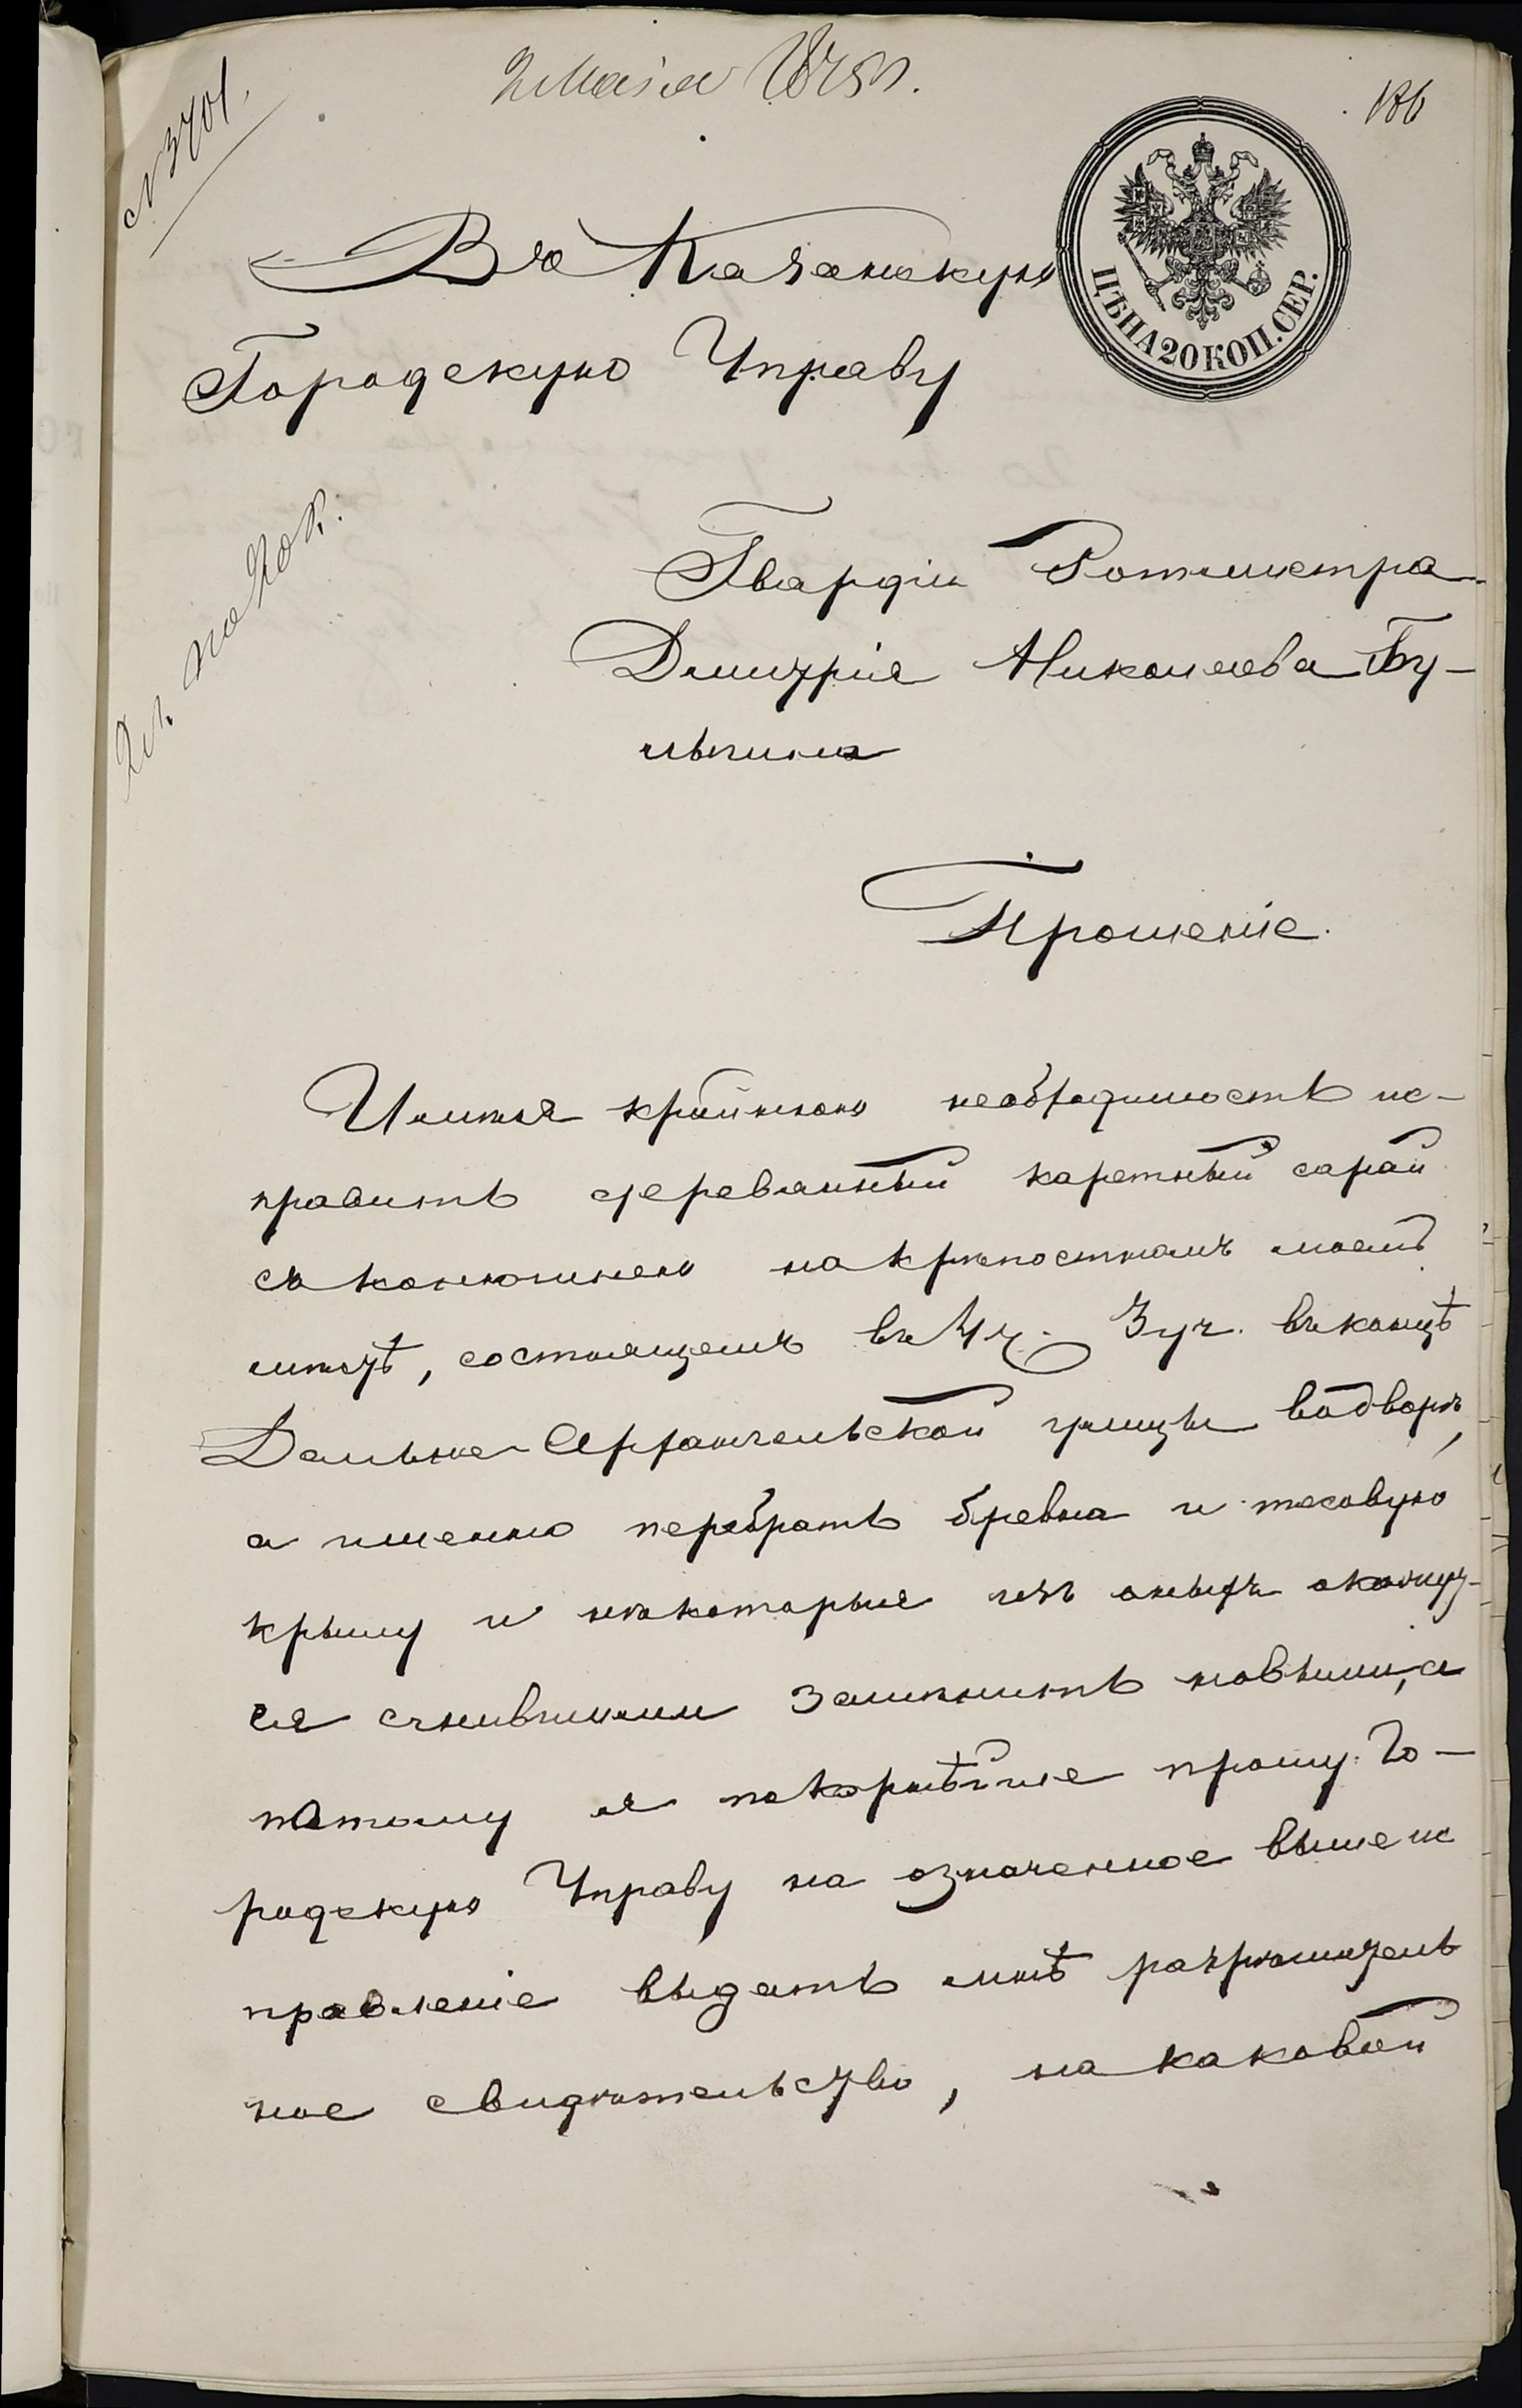 2 Мая 187
186
N 3701.
Въ Казанскую
Городскую Управу
ЦѢНА 20 КОП. СЕР.
2 м. по 20 к.
Гвардіи Ротмистра
Дмитрія Николаева Бу-
лыгина
Прошеніе.
Имѣя крайнюю необходимость ис-
править деревянный каретный сарай
съ конюшнею на крѣпостномъ моемъ
мѣстѣ, состоящемъ въ 4 ч. 3 уч. въ концѣ
Дальне-Архангельской улицы во дворѣ,
а именно перебрать бревна и тесовую
крышу и нѣкоторыя изъ оныхъ окажут-
ся сгнившими замѣнить новыми, а
потому я покорнѣйше прошу Го-
родскую Управу на означенное выше ис
правленіе выдать мнѣ разрѣшитель
ное свидѣтельство, на каковой